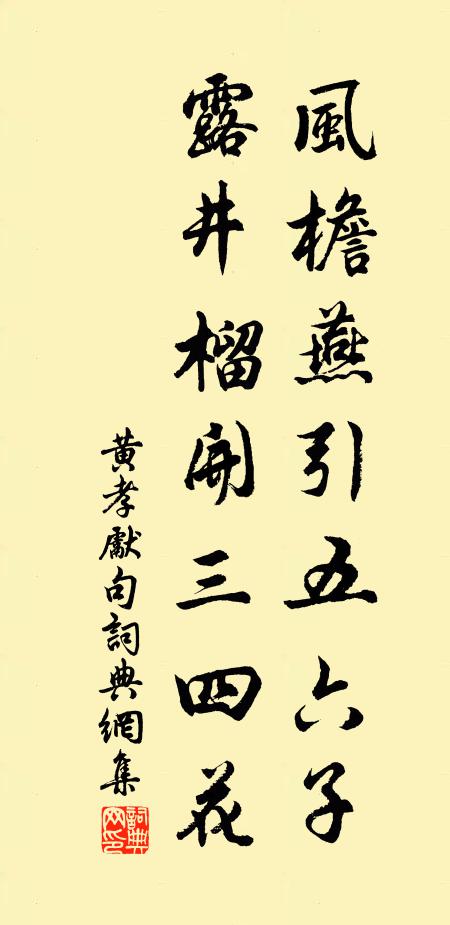 風檐燕引五六子
露井榴開三四花
黃孝獻句詞典網集
詞典网印